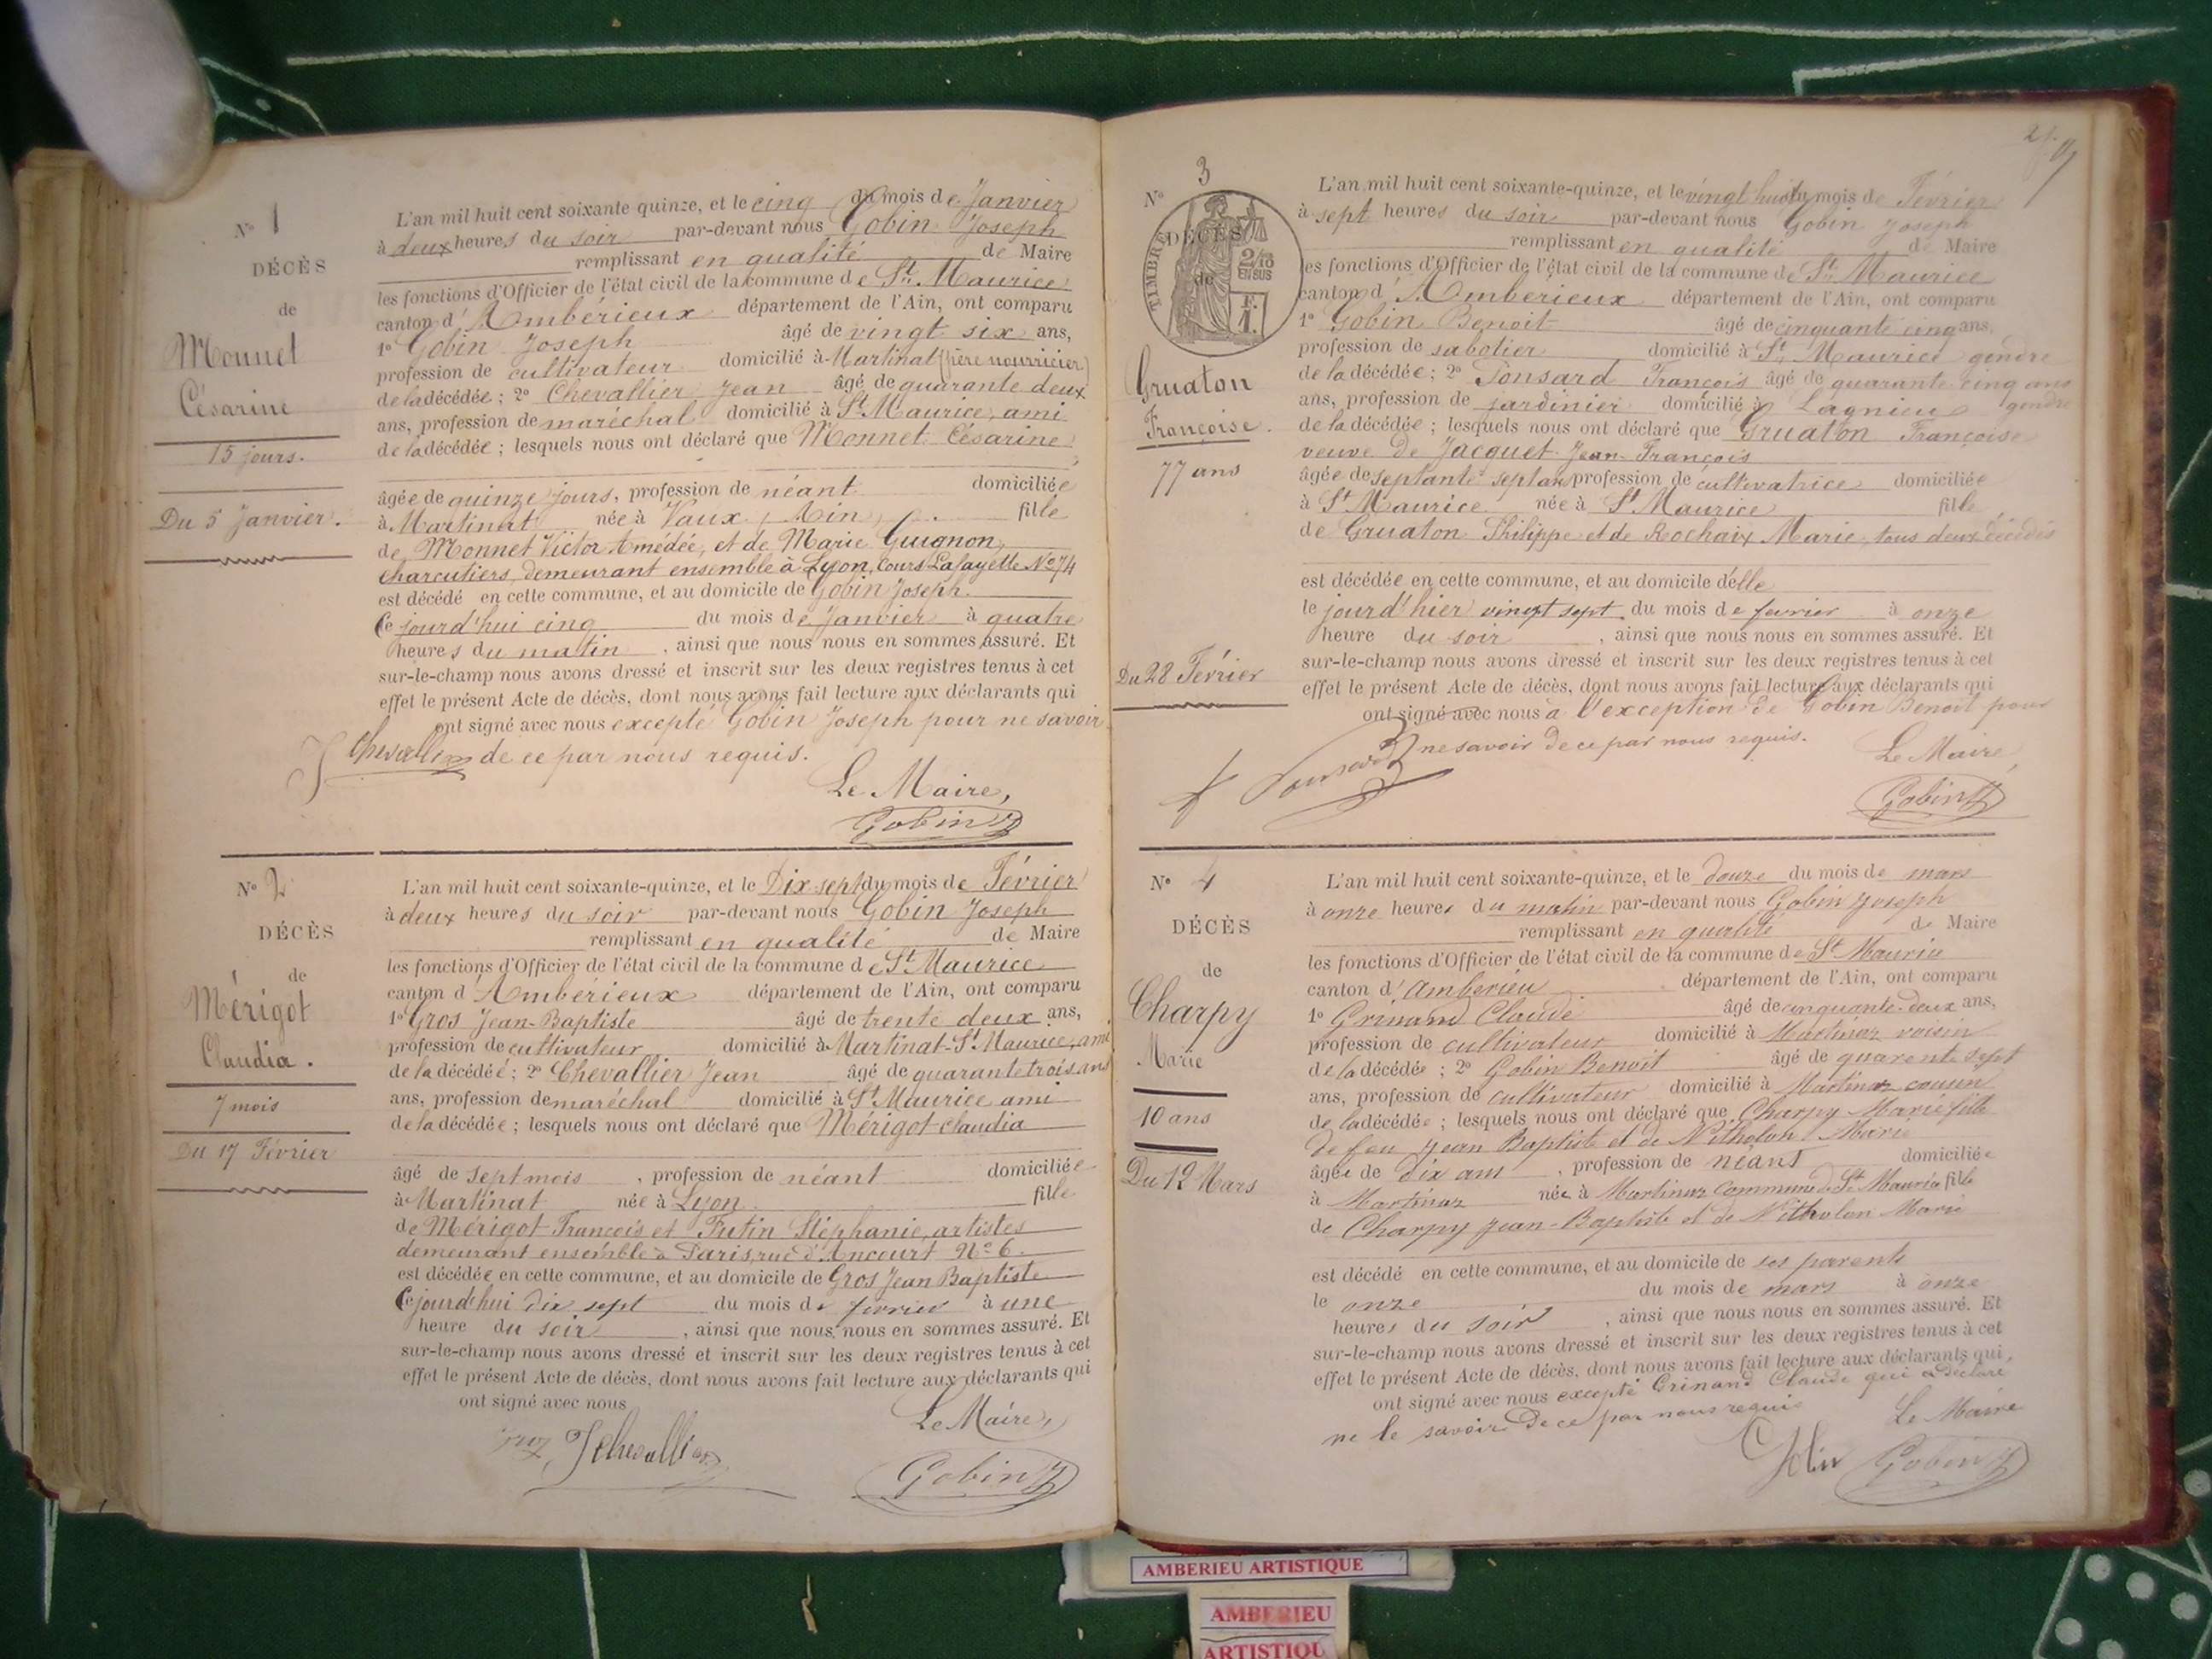 N° 1
DÉCÈS
de
Monnet
Césarine
15 jours.
Du 5 Janvier.
L'an mil huit cent soixante quinze, et le cinq du mois de Janvier
à deux heures du soir par-devant nous Gobin Joseph
remplissant en qualité de Maire
les fonctions d'Officier de l'état civil de la commune de St. Maurice
canton d'Ambérieux département de l'Ain, ont comparu
1° Gobin Joseph âgé de vingt six ans,
profession de cultivateur domicilié à Martinat (père nourricier)
de la décédée; 2° Chevallier Jean âgé de quarante deux
ans, profession de maréchal domicilié à St. Maurice, ami
de la décédée; lesquels nous ont déclaré que Monnet Césarine
âgée de quinze jours, profession de néant domiciliée
à Martinat née à Vaux, Ain, fille
de Monnet Victor Amédée, et de Marie Guignon,
charcutiers, demeurant ensemble à Lyon, Cours Lafayette N° 74
est décédé en cette commune, et au domicile de Gobin Joseph.
Ce jourd'hui cinq du mois de Janvier à quatre
heures du matin, ainsi que nous nous en sommes assuré. Et
sur-le-champ nous avons dressé et inscrit sur les deux registres tenus à cet
effet le présent Acte de décès, dont nous avons fait lecture aux déclarants qui
ont signé avec nous excepté Gobin Joseph pour ne savoir
J Chevallier de ce par nous requis.
Le Maire,
Gobin J
N° 2
DÉCÈS
de
Mérigot
Claudia.
7 mois
Du 17 Février
L'an mil huit cent soixante-quinze, et le Dix sept du mois de Février
à deux heures du soir par-devant nous Gobin Joseph
remplissant en qualité de Maire
les fonctions d'Officier de l'état civil de la commune de St Maurice
canton d'Ambérieux département de l'Ain, ont comparu
1° Gros Jean-Baptiste âgé de trente deux ans,
profession de cultivateur domicilié à Martinat-St Maurice, ami
de la décédée; 2° Chevallier Jean âgé de quarante trois ans
ans, profession de maréchal domicilié à St Maurice ami
de la décédée; lesquels nous ont déclaré que Mérigot Claudia
âgé de sept mois, profession de néant domiciliée
à Martinat née à Lyon fille
de Mérigot François et Futin Stéphanie, artistes
demeurant ensemble à Paris, rue d'Ancourt N° 6.
est décédée en cette commune, et au domicile de Gros Jean Baptiste
Ce jourd'hui dix sept du mois de fevrier à une
heure du soir, ainsi que nous nous en sommes assuré. Et
sur-le-champ nous avons dressé et inscrit sur les deux registres tenus à cet
effet le présent Acte de décès, dont nous avons fait lecture aux déclarants qui
ont signé avec nous
Le Maire,
J Chevallier
Gobin J
N° 3
DÉCÈS
de
TIMBRE
2/10
EN SUS
F.
1.
Gruaton
Françoise.
77 ans
Du 28 Février
L'an mil huit cent soixante-quinze, et le vingt huit du mois de Février
à sept heures du soir par-devant nous Gobin Joseph
remplissant en qualité de Maire
les fonctions d'Officier de l'état civil de la commune de St. Maurice
canton d'Amberieux département de l'Ain, ont comparu
1° Gobin Benoit âgé de cinquante cinq ans,
profession de sabotier domicilié à St. Maurice gendre
de la décédée; 2° Ponsard François âgé de quarante cinq ans
ans, profession de jardinier domicilié à Lagnieu gendre
de la décédée; lesquels nous ont déclaré que Gruaton Françoise
veuve de Jacquet Jean-François
âgée de septante sept ans profession de cultivatrice domiciliée
à St Maurice née à St Maurice fille
de Gruaton Philippe et de Rochaix Marie, tous deux décédés
est décédée en cette commune, et au domicile d'elle
le jourd'hier vingt sept du mois de fevrier à onze
heure du soir, ainsi que nous nous en sommes assuré. Et
sur-le-champ nous avons dressé et inscrit sur les deux registres tenus à cet
effet le présent Acte de décès, dont nous avons fait lecture aux déclarants qui
ont signé avec nous à l'exception de Gobin Benoit pour
ne savoir de ce par nous requis.
Le Maire,
Ponsard
Gobin J
N° 4
DÉCÈS
de
Charpy
Marie
10 ans
Du 12 Mars
L'an mil huit cent soixante-quinze, et le douze du mois de mars
à onze heures du matin par-devant nous Gobin Joseph
remplissant en qualité de Maire
les fonctions d'Officier de l'état civil de la commune de St Maurice
canton d'Amberieu département de l'Ain, ont comparu
1° Grinand Claude âgé de cinquante-deux ans,
profession de cultivateur domicilié à Martinaz voisin
de la décédée; 2° Gobin Benoit âgé de quarente sept
ans, profession de cultivateur domicilié à Martinaz cousin
de la décédée; lesquels nous ont déclaré que Charpy Marie fille
de feu Jean Baptiste et de Nitholon Marie
âgée de dix ans, profession de néant domiciliée
à Martinaz née à Martinaz Commune de St Maurice fille
de Charpy Jean-Baptiste et de Nitholon Marie
est décédé en cette commune, et au domicile de ses parents
le onze du mois de mars à onze
heures du soir, ainsi que nous nous en sommes assuré. Et
sur-le-champ nous avons dressé et inscrit sur les deux registres tenus à cet
effet le présent Acte de décès, dont nous avons fait lecture aux déclarants qui,
ont signé avec nous excepté Grinand Claude qui a déclaré
ne le savoir de ce par nous requis
Le Maire
Gobin
Gobin J
AMBERIEU ARTISTIQUE
AMBERIEU
ARTISTIQU